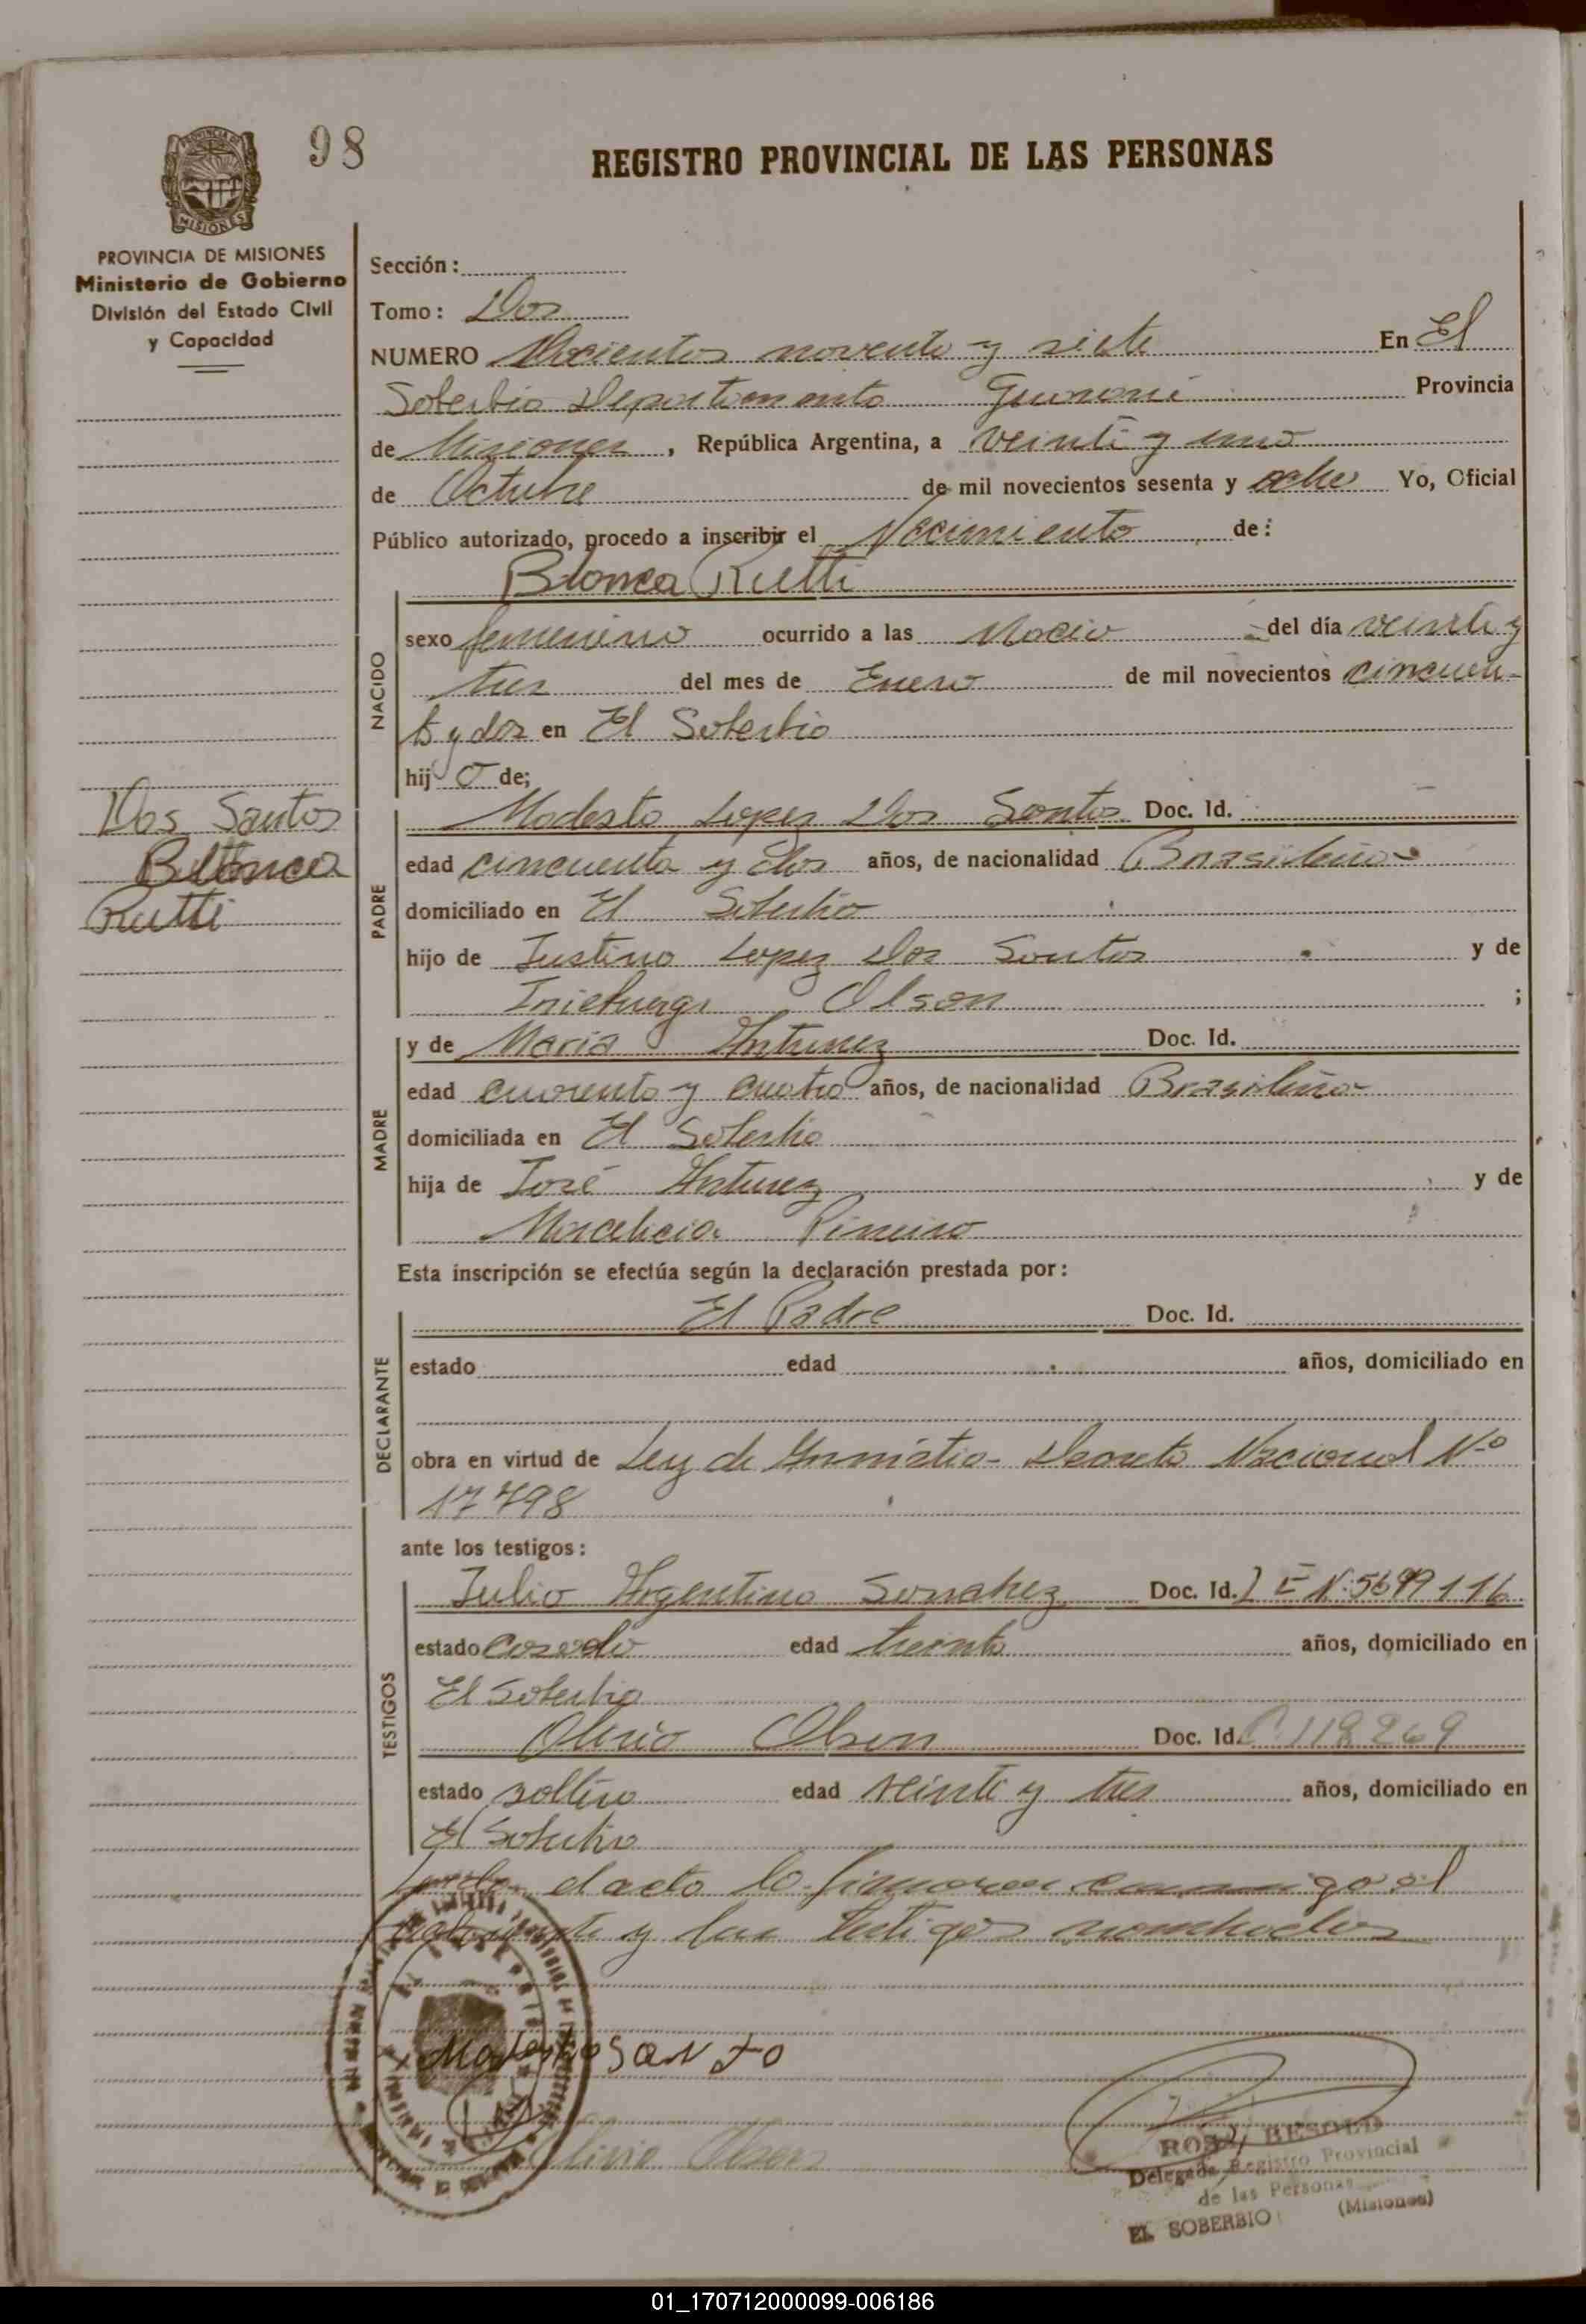 98
REGISTRO PROVINCIAL DE LAS PERSONAS
PROVINCIA DE MISIONES
MISIONES
PROVINCIA DE MISIONES
Ministerio de Gobierno
División del Estado Civil
y Capacidad
Sección:
Tomo: Dos
NUMERO Docientos noventa y siete En El
Soberbio Departamento Guarani Provincia
de Misiones, República Argentina, a veinti y uno
de Octubre de mil novecientos sesenta y ocho Yo, Oficial
Público autorizado, procedo a inscribir el Nacimiento de:
Blanca Rutti
NACIDO
sexo femenino ocurrido a las del día veinte y
tres del mes de Enero de mil novecientos cincuen-
ta y dos en El Soberbio
hij o de;
Dos Santos
Blanca
Rutti
PADRE
Modesto Lopez Dos Santos Doc. Id.
edad cincuenta y dos años, de nacionalidad Brasileño
domiciliado en El Soberbio
hijo de Justino Lopez Dos Santos y de
Olson ;
MADRE
y de Maria Antunez Doc. Id.
edad cuarenta y cuatro años, de nacionalidad Brasileña
domiciliada en El Soberbio
hija de José Antunez y de
Esta inscripción se efectúa según la declaración prestada por:
DECLARANTE
El Padre Doc. Id.
estado edad años, domiciliado en
obra en virtud de Ley de Amnistia - Decreto Nacional Nº
17798
ante los testigos:
TESTIGOS
Julio Argentino Sanchez Doc. Id. L E N: 5699116
estado Casado edad treinta años, domiciliado en
El Soberbio
Olivio Olsen Doc. Id. C 118269
estado soltero edad veinte y tres años, domiciliado en
El Soberbio
el acto lo firmaron conmigo el
y los testigos nombrados
Modesto SANTO
Olivio Olsen
ROSA BESOLD
Delegada Registro Provincial
de las Personas
EL SOBERBIO (Misiones)
01_170712000099-006186